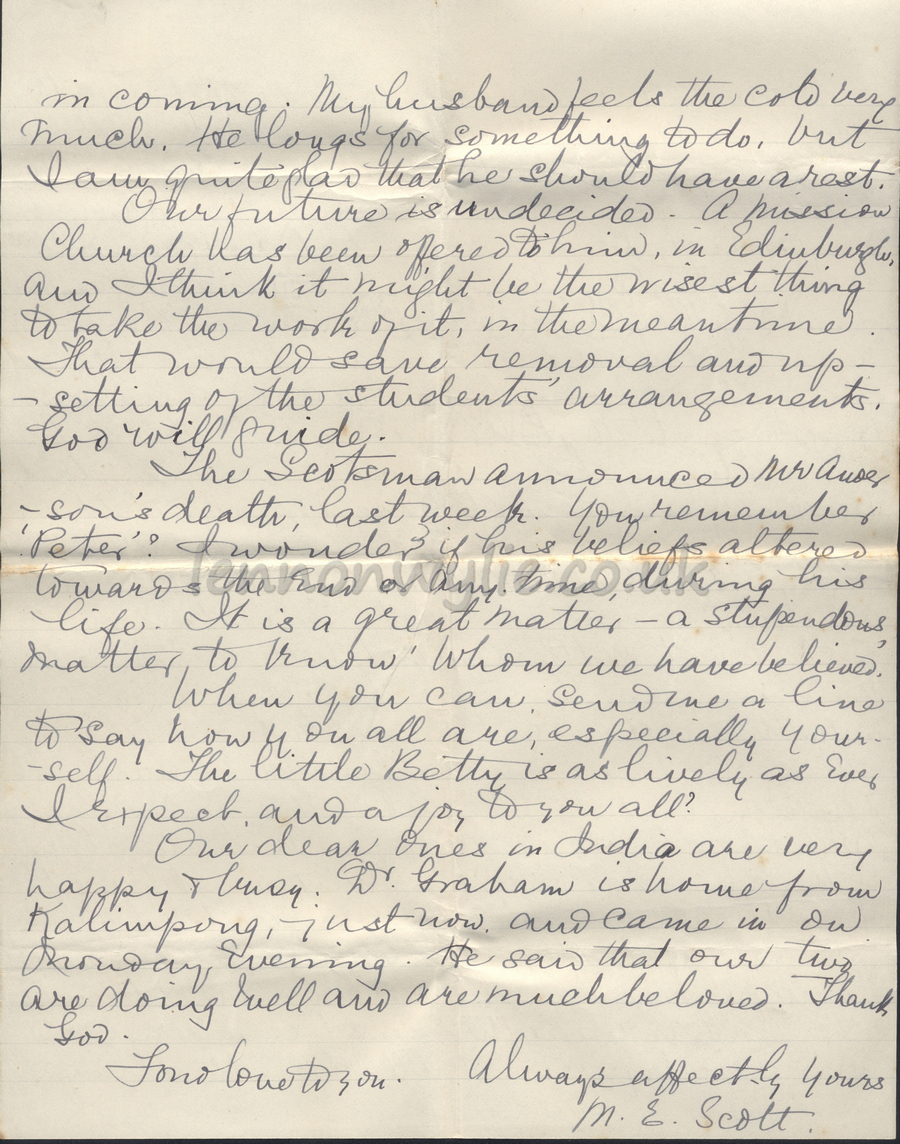 in coming. My husband feels the cold very
much. He longs for something to do, but
I am quite glad that he should have a rest.
Our future is undecided - A mission
Church has been offered to him, in Edinburgh,
and I think it might be the wisest thing
to take the work of it, in the meantime.
That would save removal and up-
-setting of the students' arrangements.
God will guide.
The Scotsman announced Mr Ander
-son's death, last week. You remember
'Peter'? I wonder if his beliefs altered
towards the End or any time, during his
life. It is a great matter - a stupendous
matter, to know 'Whom we have believed.'
When you can, send me a line
to say how you all are, especially your-
-self. The little Betty is as lively as Ever
I Expect, and a joy to you all?
Our dear Ones in India are very
happy & busy. Dr. Graham is home from
Kalimpong, - just now, and came in on
Monday Evening. He said that our two
are doing well and are much beloved. Thank
God.
Fond love to you. Always affectly yours
M. E. Scott.
lennonwylie.co.uk